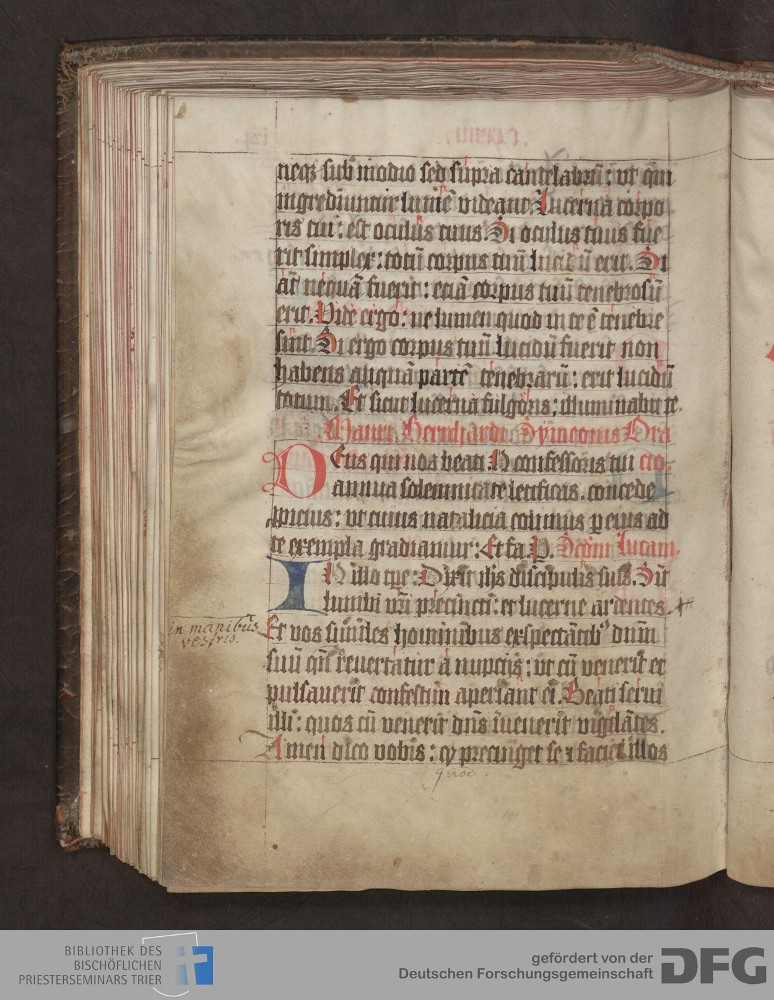 neq₃ sub modio sed supra candelabrū: vt qui
ingrediuntur lumē videant. Lucerna corpo
ris tui: est oculus tuus. Si oculus tuus fue
rit simplex: totū corpus tuū lucidū erit. Si
at̄ nequā fuerit: eciā corpus tuū tenebrosū
erit. Vide ergo: ne lumen quod in te ē tenebre
sint. Si ergo corpus tuū lucidū fuerit non
habens aliquā partē tenebrarū: erit lucidū
totum. Et sicut lucerna fulgoris: illuminabit te.
Mauri. Bernhardi. Symeonis Ora
DEus qui nos beati N confessoris tui cio.
annua solemnitate letificas. concede
ppicius: vt cuius natalicia colimus p eius ad
te exempla gradiamur: Scd̄m Lucam.
IN illo tp̄e: Dixit ih̄s discipulis suis. Sint
lumbi vr̄i precincti: et lucerne ardentes.
in manibus
vestris.
Et vos similes hominibus exspectantib⁹ dn̄m
suū qn̄ reuertatur a nupcijs: vt cū venerit et
pulsauerit confestim aperiant ei. Beati serui
illi: quos cū venerit dn̄s inuenerit vigilātes.
Amen dico vobis: ꝙ precinget se ⁊ faciet illos
quod
BIBLIOTHEK DES
BISCHÖFLICHEN
PRIESTERSEMINARS TRIER
gefördert von der
Deutschen Forschungsgemeinschaft DFG